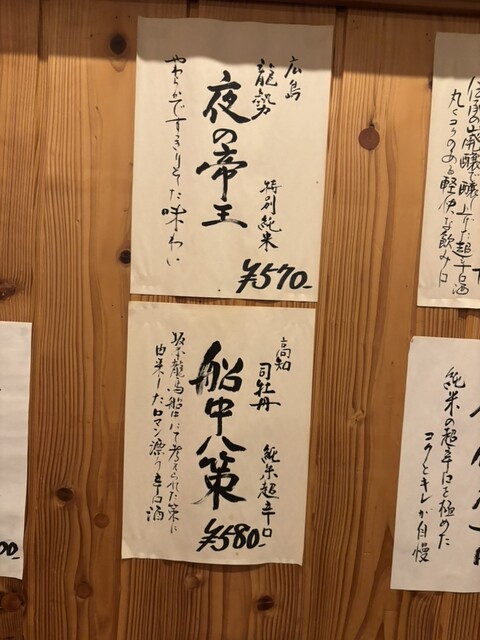 広島
龍勢
夜の帝王
特別純米
¥570-
やわらかですっきりとした味わい
高知
司牡丹
船中八策
純米超辛口
¥580-
坂本龍馬船にて考えられた策に
由来したロマン漂う辛口酒
山廃醸で醸し上げた超辛口酒
丸くコクのある軽快な飲み口
純米の超辛口を極めた
コクとキレが自慢
00-